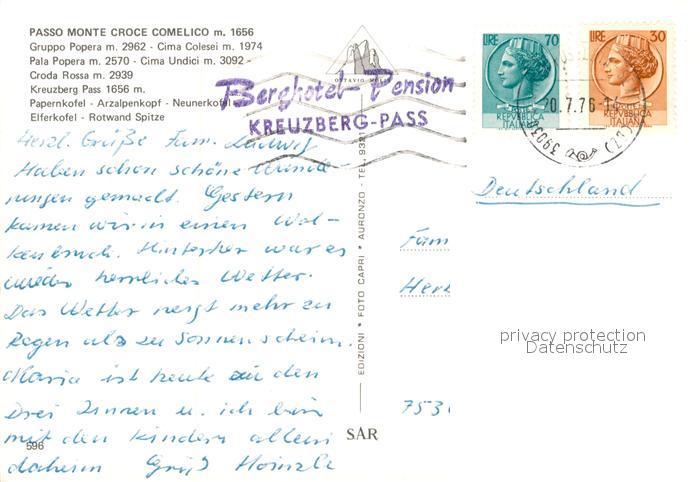 PASSO MONTE CROCE COMELICO m. 1656
Gruppo Popera m. 2962 - Cima Colesei m. 1974
Pala Popera m. 2570 - Cima Undici m. 3092 -
Croda Rossa m. 2939
Kreuzberg Pass 1656 m.
Papernkofel - Arzalpenkopf - Neunerkofel
Elferkofel - Rotwand Spitze
Berghotel-Pension
KREUZBERG-PASS
Herzl. Grüße Fam. Ludwig
Haben schon schöne Wande-
rungen gemacht. Gestern
kamen wir in einen Wol-
kenbruch. Hinterher war es
wieder herrliches Wetter.
Das Wetter neigt mehr zu
Regen als zu Sonnenschein.
Maria ist heute zu den
Drei Zinnen u. ich bin
mit den Kindern allein
daheim Gruß
596
EDIZIONI * FOTO CAPRI * AURONZO - TEL.
SAR
LIRE 70
REPVBBLICA
ITALIANA
LIRE 30
REPVBBLICA
ITALIANA
20.7.76
Deutschland
Fam
753
privacy protection
Datenschutz